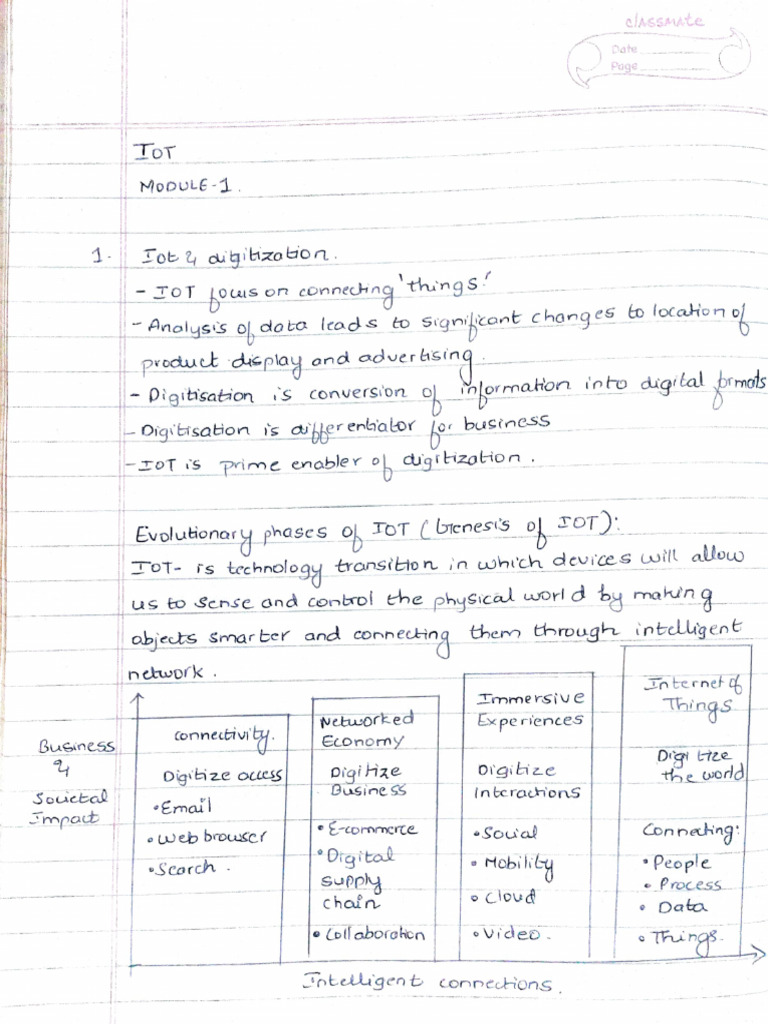 classmate
Date
Page
IOT
MODULE-1.
1. Iot & digitization.
- IOT focus on connecting 'things'
- Analysis of data leads to significant changes to location of
product display and advertising.
- Digitisation is conversion of information into digital formats
- Digitisation is differentiator for business
- IOT is prime enabler of digitization.
Evolutionary phases of IOT (Genesis of IOT):
IOT- is technology transition in which devices will allow
us to sense and control the physical world by making
objects smarter and connecting them through intelligent
network.
Business
&
Societal
Impact
connectivity.
Digitize access
• Email
• Web browser
• Search.
Networked
Economy
Digitize
Business
• E-commerce
• Digital
supply
chain
• Collaboration
Immersive
Experiences
Digitize
Interactions
• Social
• Mobility
• Cloud
• Video.
Internet of
Things
Digitize
the world
Connecting:
• People
• Process
• Data
• Things.
Intelligent connections.